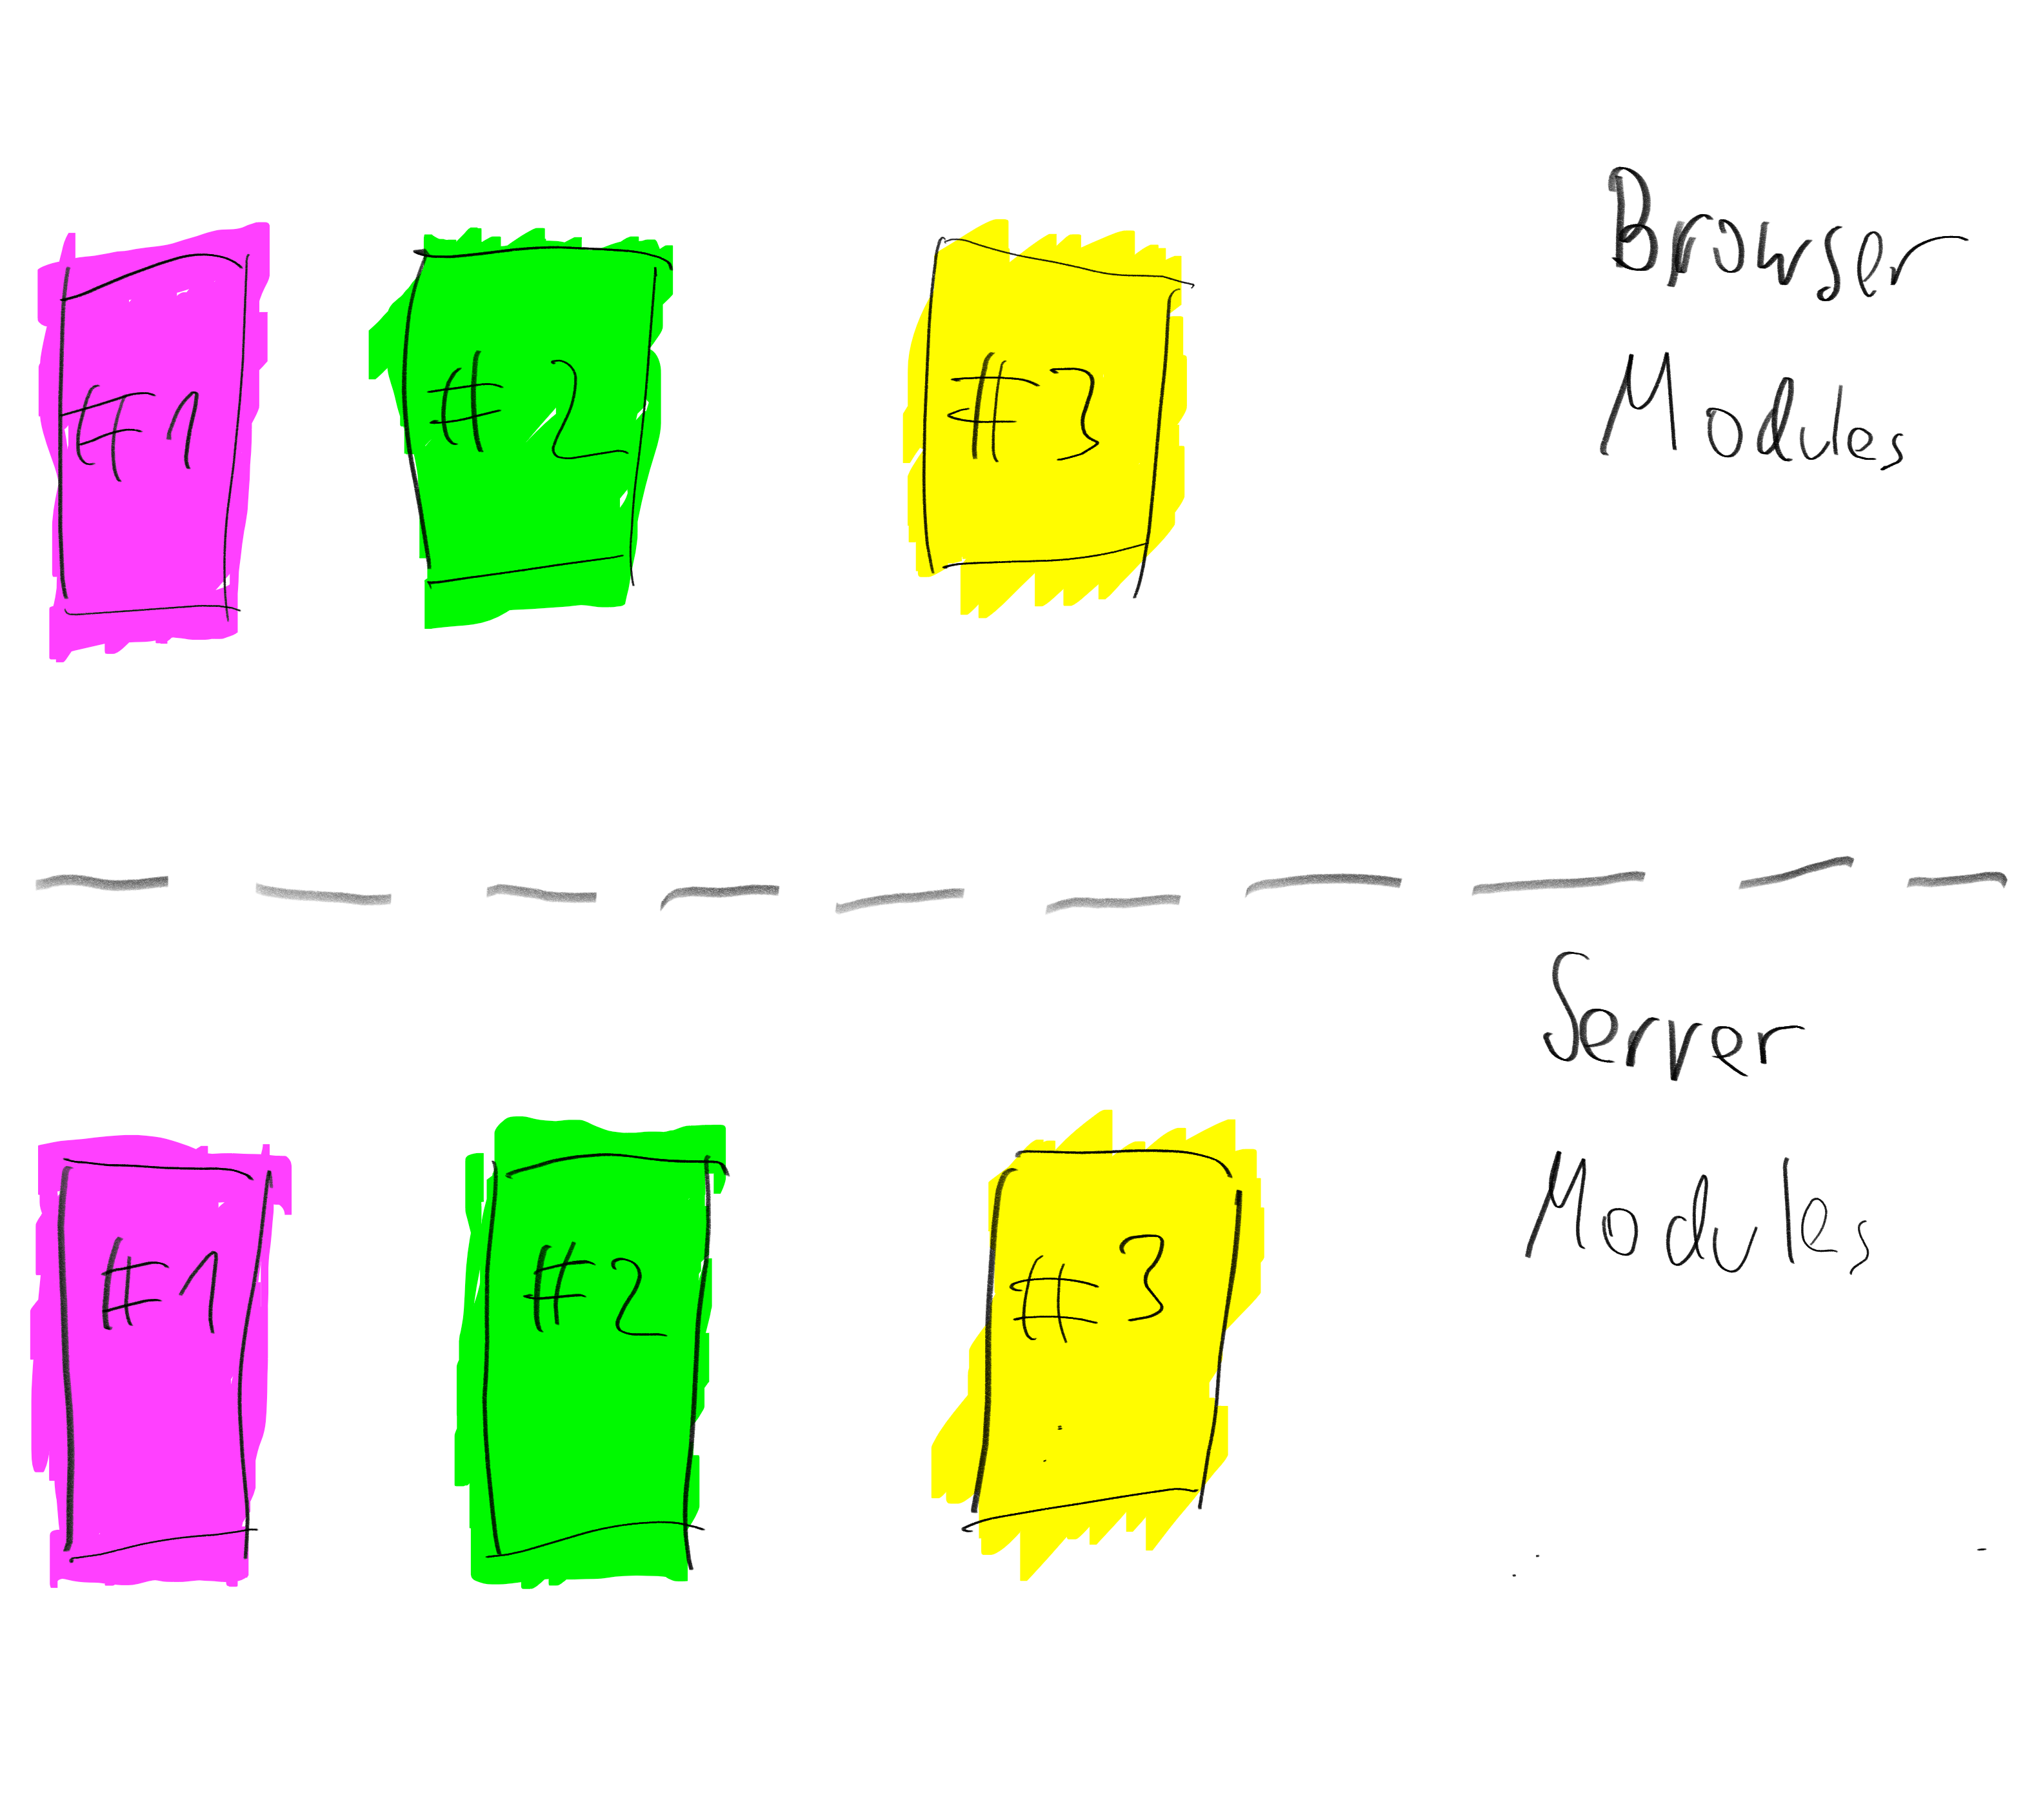 Browser
Modules
#1 #2 #3
Server
Modules
#1 #2 #3